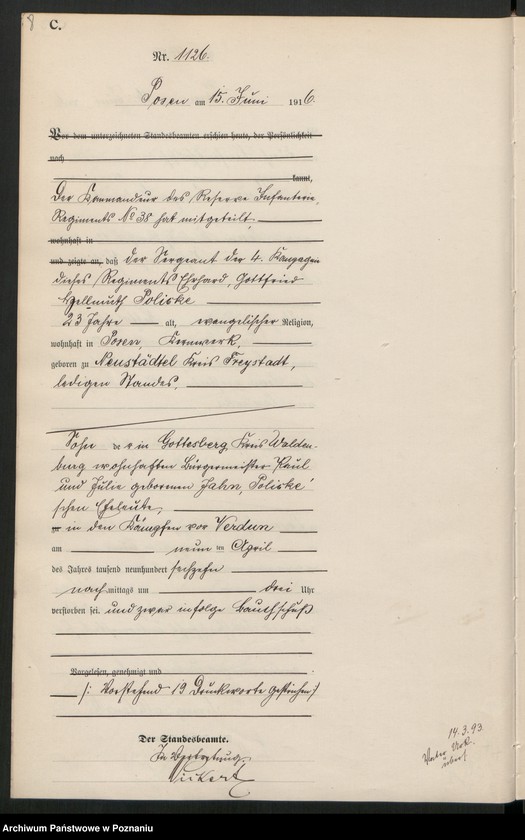 8 C.
Nr. 1126.
Posen am 15. Juni 1916.
Vor dem unterzeichneten Standesbeamten erschien heute, der Persönlichkeit
nach
kannt,
Der Kommandeur des Reserve Infanterie
Regiments No 38 hat mitgeteilt,
wohnhaft in
und zeigte an, daß der Sergeant der 4. Kompagnie
dieses Regiments Ehrhard, Gottfried
Hellmuth Poliske
23 Jahre alt, evangelischer Religion,
wohnhaft in Posen, Kernwerk,
geboren zu Neustädtel Kreis Freystadt,
ledigen Standes,
Sohn des in Gottesberg, Kreis Walden-
burg wohnhaften Bürgermeister Paul
und Julie geborenen Jahn, Poliske'
schen Eheleute,
zu in den Kämpfen vor Verdun
am neun ten April
des Jahres tausend neunhundert sechzehn
nachmittags um drei Uhr
verstorben sei. und zwar infolge Bauchschuß
Vorgelesen, genehmigt und
/: Vorstehend 19 Druckworte gestrichen :/
Der Standesbeamte.
In Vertretung
14.3.93
Archiwum Państwowe w Poznaniu